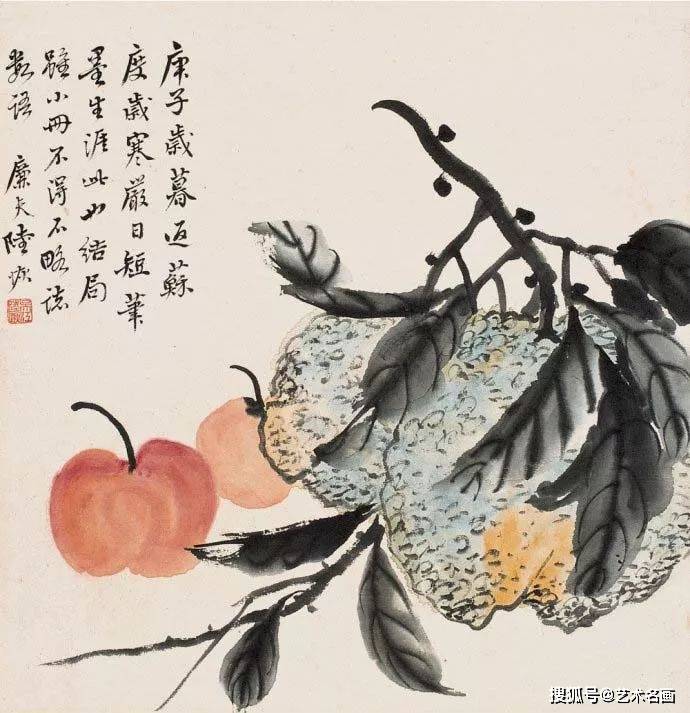 庚子歲暮返蘇
度歲寒嚴日短筆
墨生涯此為結局
雖小冊不得不略誌
數語 廉夫陸恢
搜狐号@艺术名画